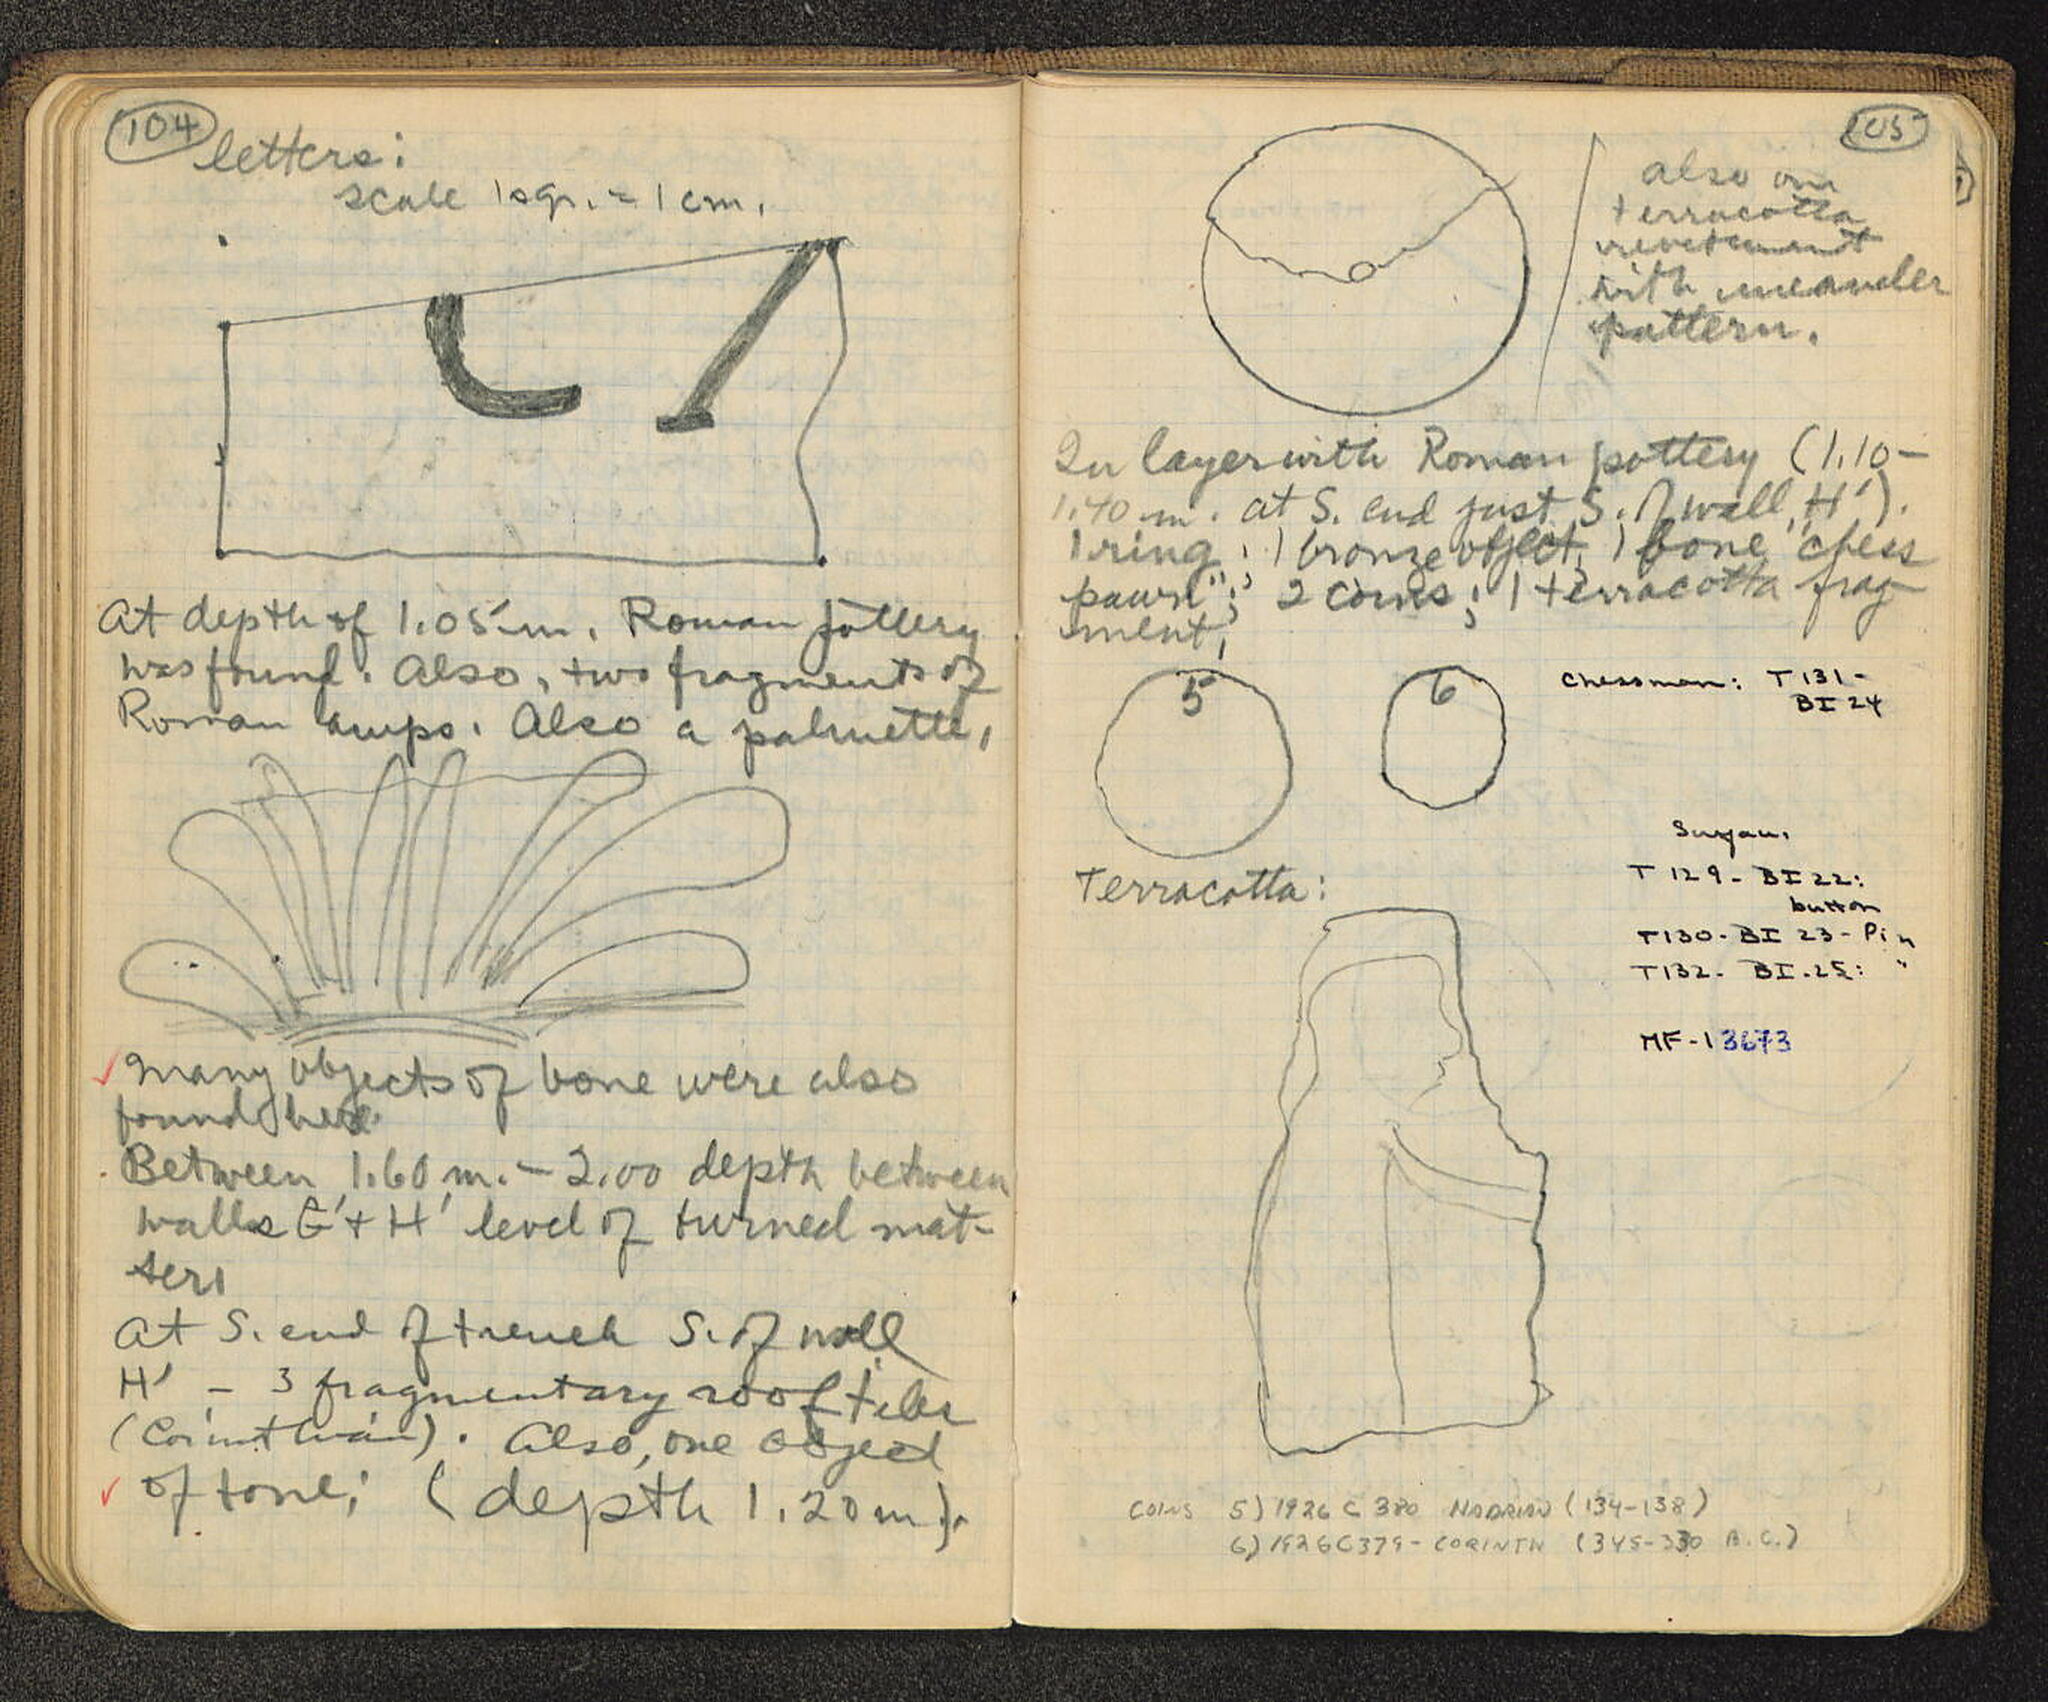 104
letters:
scale 1sqr. = 1 cm.
At depth of 1.05 m. Roman pottery
was found. Also, two fragments of
Roman lamps. Also a palmette,
Many objects of bone were also
found here.
Between 1.60 m. - 2.00 depth between
walls G' + H' level of turned mat-
ter.
At S. end of trench S. of wall
H' - 3 fragmentary roof tiles
(Corinthian). Also, one object
of bone; (depth 1.20 m).
105
also one
terracotta
revetment
with meander
pattern.
In layer with Roman pottery (1.10-
1.40 m. at S. end just S. of wall H').
1 ring, 1 bronze object, 1 bone "chess
pawn"; 2 coins; 1 terracotta frag-
ment,
5
6
Chessman: T 131-
BI 24
T 129- BI 22:
button
T130- BI 23- Pin
T132- BI-25: "
MF-13673
Terracotta:
COINS 5) 1926 C 380 HADRIAN (134-138)
6) 1926 C 379- CORINTH (345-330 B.C.)